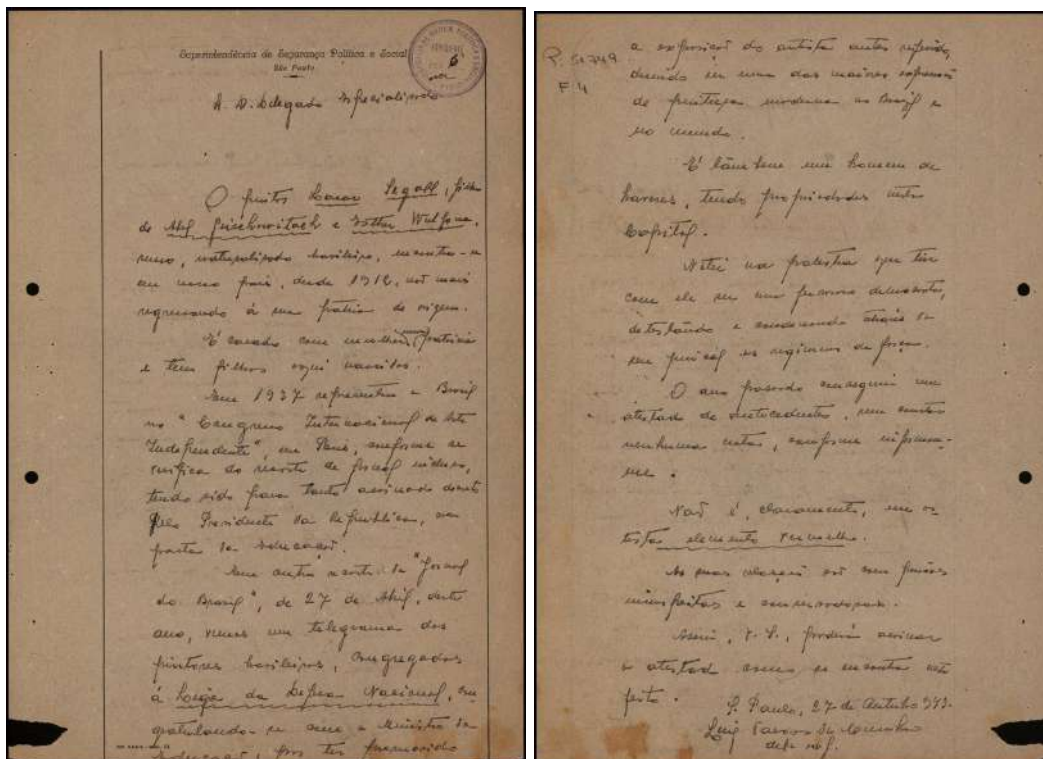 Superintendência de Segurança Política e Social
São Paulo
6
A. D. Delegado Especialisado
O pintor Lasar Segall, filho
de Abel e Esther
russo, naturalisado brasileiro, encontra-se
em nosso país, desde 1912, não mais
regressando á sua pátria de origem.
É casado com mulher patricia
e tem filhos aqui nascidos.
Em 1937 representou o Brasil
no "Congresso Internacional de Arte
Independente", em Paris, conforme se
verifica do recorte de jornal incluso,
tendo sido para tanto assinado decreto
pelo Presidente da Republica, na
pasta da Educação.
Em outro recorte do "Jornal
do Brasil", de 27 de Abril, deste
ano, vemos um telegrama dos
pintores brasileiros, congregados
á Liga da Defesa Nacional, con
gratulando-se com o Ministro da
Educação, por ter promovido
P. 51749
F. 4
a exposição do artista antes referido,
dizendo ser uma das maiores expressões
de pintura moderna no Brasil e
no mundo.
É tambem um homem de
haveres, tendo propriedades nesta
Capital.
Notei na palestra que tive
com ele ser uma pessoa democrata,
detestando e condenando através de
seu pincel os regimens de força.
O ano passado conseguiu um
atestado de antecedentes, sem constar
nenhuma nota, conforme informou-
me.
Não é, claramente, um
elemento vermelho.
As suas relações são com pessoas
insuspeitas e conservadoras.
Assim, V. S., poderá assinar
o atestado como se encontra
feito.
S. Paulo, 27 de Outubro 943.
Luiz